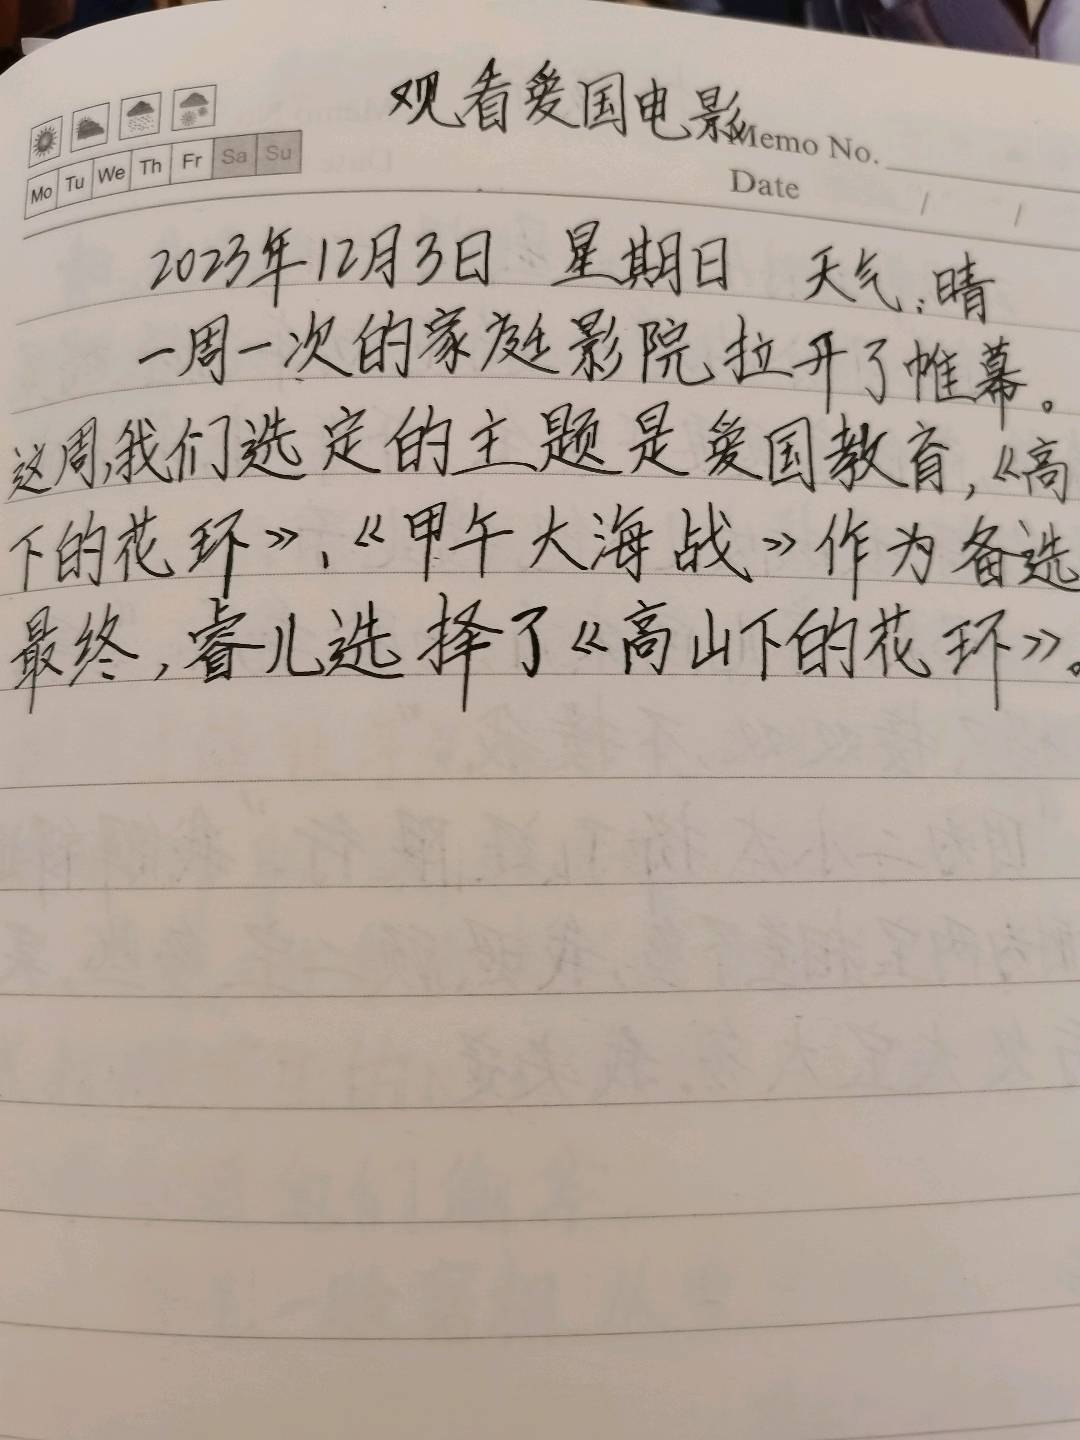 观看爱国电影
Memo No.
Mo Tu We Th Fr Sa Su
Date / /
2023年12月3日 星期日 天气:晴
一周一次的家庭影院拉开了帷幕。
这周,我们选定的主题是爱国教育,《高
下的花环》、《甲午大海战》作为备选
最终,睿儿选择了《高山下的花环》。